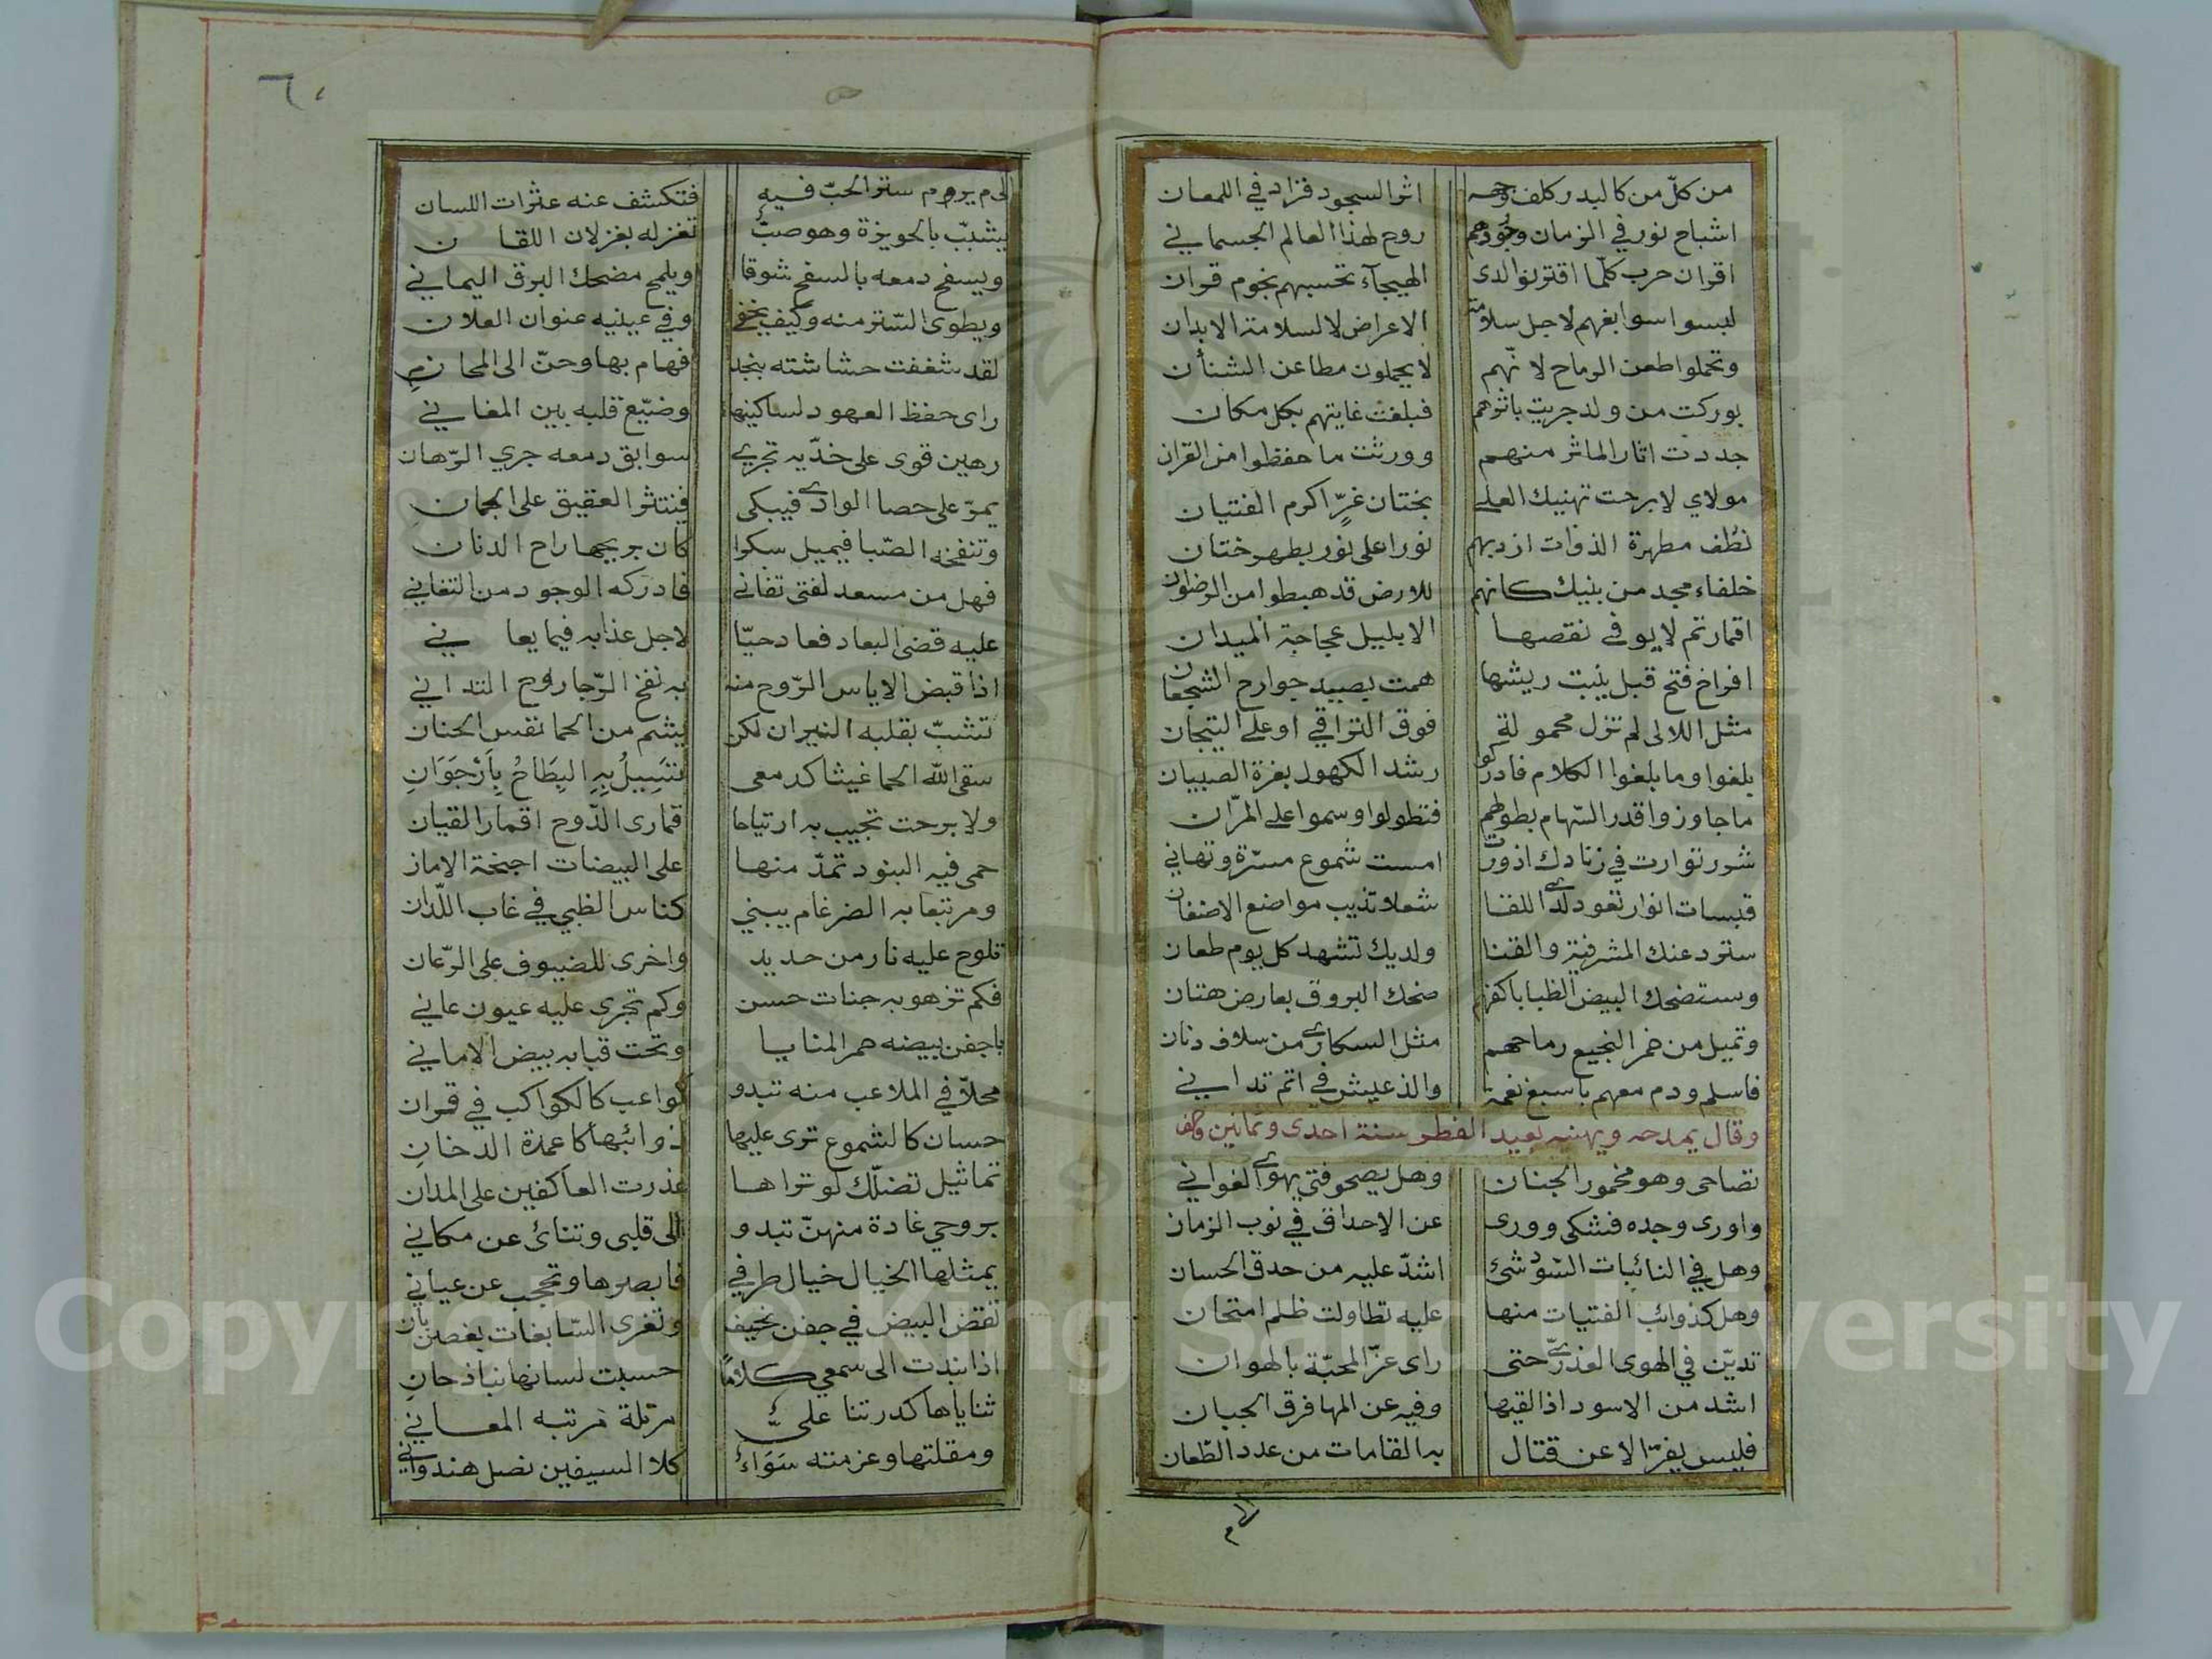 من كلّ من كالبدر كلف وجهه اثر السجود فزاد في اللمعان
اشباح نور في الزمان وجودهم روح لهذا العالم الجسماني
اقران حرب كلّما اقترنوا لدى الهيجآء تحسبهم نجوم قران
لبسوا سوابغهم لاجل سلامة الاعراض لا لسلامة الابدان
وتحملوا طعن الرماح لانّهم لا يحملون مطاعن الشنأن
بوركت من ولد جريت باثرهم فبلغت غايتهم بكل مكان
جددت اثار الماثر منهم وورثت ما حفظوا من القران
مولاي لا برحت تهنيك العلى بختان غرٍّ اكرم الفتيان
نطف مطهرة الذوات ازدبهم نورا على نور بطهر ختان
خلفاء مجد من بنيك كانهم للارض قد هبطوا من الرضوان
اقمار تم لا يوفى نقصها الا بليل عجاجة الميدان
افراخ فتح قبل ينبت ريشها همت بصيد جوارح الشجعان
مثل اللالى لم تزل محمولة فوق التراقي او على التيجان
بلغوا وما بلغوا الكلام فادركوا رشد الكهول بغرة الصبيان
ما جاوزوا قدر السّهام بطولهم فتطولوا وسموا على المرّان
شرر توارت في زنادك اذورت امست شموع مسرّة وتهاني
قبسات انوار تعود لدى اللقا شعلا تذيب مواضع الاضغان
سترد عنك المشرفية والقنا ولديك تشهد كل يوم طعان
وستضحك البيض الظبا باكفهم ضحك البروق بعارض هتان
وتميل من خمر النجيع رماحهم مثل السكارى من سلاف دنان
فاسلم ودم معهم باسبغ نعمة والذ عيش في اتم تداني
وقال يمدحه ويهنيه بعيد الفطر سنة احدى وثمانين والف
تصاحى وهو مخمور الجنان وهل يصحو فتى يهوى الغواني
واورى وجده فشكى وورى عن الاحداق في نوب الزمان
وهل في النائبات السّود شئ اشدّ عليه من حدق الحسان
وهل كذوائب الفتيات منها عليه تطاولت ظلم امتحان
تديّن في الهوى العذريّ حتى راى عزّ المحبّة بالهوان
اشد من الاسود اذا لقيها وفيه عن المها فرق الجبان
فليس يفرّ الا عن قتال به القامات من عدد الطّعان
الام
٦٠
الى م يروم ستر الحبّ فيه فتكشف عنه عثرات اللسان
يشبّب بالحويزة وهو صبّ تغزله بغزلان اللقان
ويسفح دمعه بالسفح شوقا ويلمح مضحك البرق اليماني
ويطوى السّتر منه وكيف يخفى وفي عينيه عنوان العلان
لقد شغفت حشاشته بنجد فهام بها وحنّ الى المحاني
راى حفظ العهود لساكنيها وضيّع قلبه بين المغاني
رهين قوى على خدّيه تجرى سوابق دمعه جري الرّهان
يمرّ على حصا الوادى فيبكى فينتثر العقيق على الجمان
وتنفخه الصّبا فيميل سكرا كان بريحها راح الدنان
فهل من مسعد لفتى تفانى فادركه الوجود من التفاني
عليه قضى البعاد فعاد حيّا لاجل عذابه فيما يعاني
اذا قبض الاياس الرّوح منه به نفخ الرّجا روح التداني
تشبّ بقلبه النيران لكن يشم من الحما نفس الجنان
سقى الله الحما غيثا كدمعى تَسِيلُ بِهِ البِطَاحُ بِاَرْجَوَانِ
ولا برحت تجيب به ارتياحا قمارى الدّوح اقمار القيان
حمى فيه البنود تمدّ منها على البيضات اجنحة الامان
ومرتبعا به الضرغام يبني كناس الظبي في غاب اللّدان
تلوح عليه نار من حديد واخرى للضيوف على الرّعان
فكم تزهو به جنات حسن وكم تجرى عليه عيون عاني
باجفن بيضه حمر المنايا وتحت قبابه بيض الاماني
محلّا في الملاعب منه تبدو كواعب كالكواكب في قران
حسان كالشموع ترى عليها ذوائبها كاعمدة الدخان
تماثيل تضلّك لو تراها عذرت العاكفين على المدان
بروحي غادة منهنّ تبدو الى قلبى وتنائ عن مكاني
يمثلها الخيال خيال طرفي فابصرها وتحجب عن عياني
تقضّ البيض في جفن نحيف وتغرى السّابغات بغصن بان
اذا نبذت الى سمعي كلامًا حسبت لسانها نباذ حان
ثناياها كدرتنا علىّ مرتلة مرتبه المعاني
ومقلتها وعزمته سَوَاءٌ كلا السيفين نصل هندواني
Copyright © King Saud University